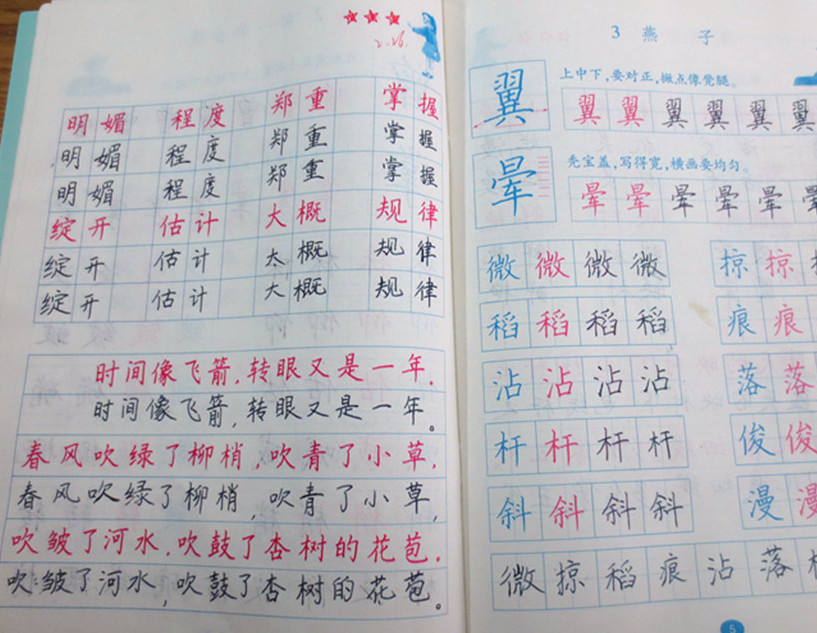 2.26.
明媚 程度 郑重 掌握
明媚 程度 郑重 掌握
明媚 程度 郑重 掌握
绽开 估计 大概 规律
绽开 估计 大概 规律
绽开 估计 大概 规律
时间像飞箭,转眼又是一年.
时间像飞箭,转眼又是一年。
春风吹绿了柳梢,吹青了小草,
春风吹绿了柳梢,吹青了小草,
吹皱了河水,吹鼓了杏树的花苞.
吹皱了河水,吹鼓了杏树的花苞。
3 燕 子
上中下,要对正,撇点像凳腿。
翼 翼翼翼翼翼翼
秃宝盖,写得宽,横画要均匀。
晕 晕晕晕晕晕晕
微微微微 掠掠
稻稻稻稻 痕痕
沾沾沾沾 落落
杆杆杆杆 俊俊
斜斜斜斜 漫漫
微掠稻痕沾落
5